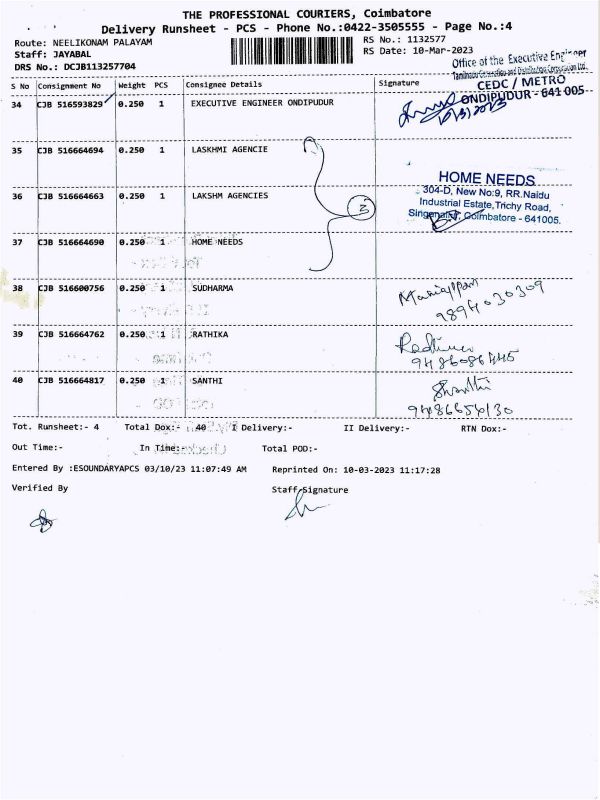 THE PROFESSIONAL COURIERS, Coimbatore
Delivery Runsheet - PCS - Phone No.:0422-3505555 - Page No.:4
Route: NEELIKONAM PALAYAM
RS No.: 1132577
Staff: JAYABAL
RS Date: 10-Mar-2023
DRS No.: DCJB113257704
Office of the Executive Engineer
Tamilnadu Generation and Distribution Corporation Ltd.
CEDC / METRO
ONDIPUDUR - 641 005
S No Consignment No Weight PCS Consignee Details Signature
34 CJB 516593829 0.250 1 EXECUTIVE ENGINEER ONDIPUDUR
10/3/2023
35 CJB 516664694 0.250 1 LASKHMI AGENCIE
36 CJB 516664663 0.250 1 LAKSHM AGENCIES
3
HOME NEEDS
304-D, New No:9, RR.Naidu
Industrial Estate, Trichy Road,
Singanallur, Coimbatore - 641005.
37 CJB 516664690 0.250 1 HOME NEEDS
38 CJB 516600756 0.250 1 SUDHARMA
9894030309
39 CJB 516664762 0.250 1 RATHIKA
40 CJB 516664817 0.250 1 SANTHI
Shanthi
Tot. Runsheet:- 4 Total Dox:- 40 I Delivery:- II Delivery:- RTN Dox:-
Out Time:- In Time:- Total POD:-
Entered By :ESOUNDARYAPCS 03/10/23 11:07:49 AM Reprinted On: 10-03-2023 11:17:28
Verified By Staff Signature